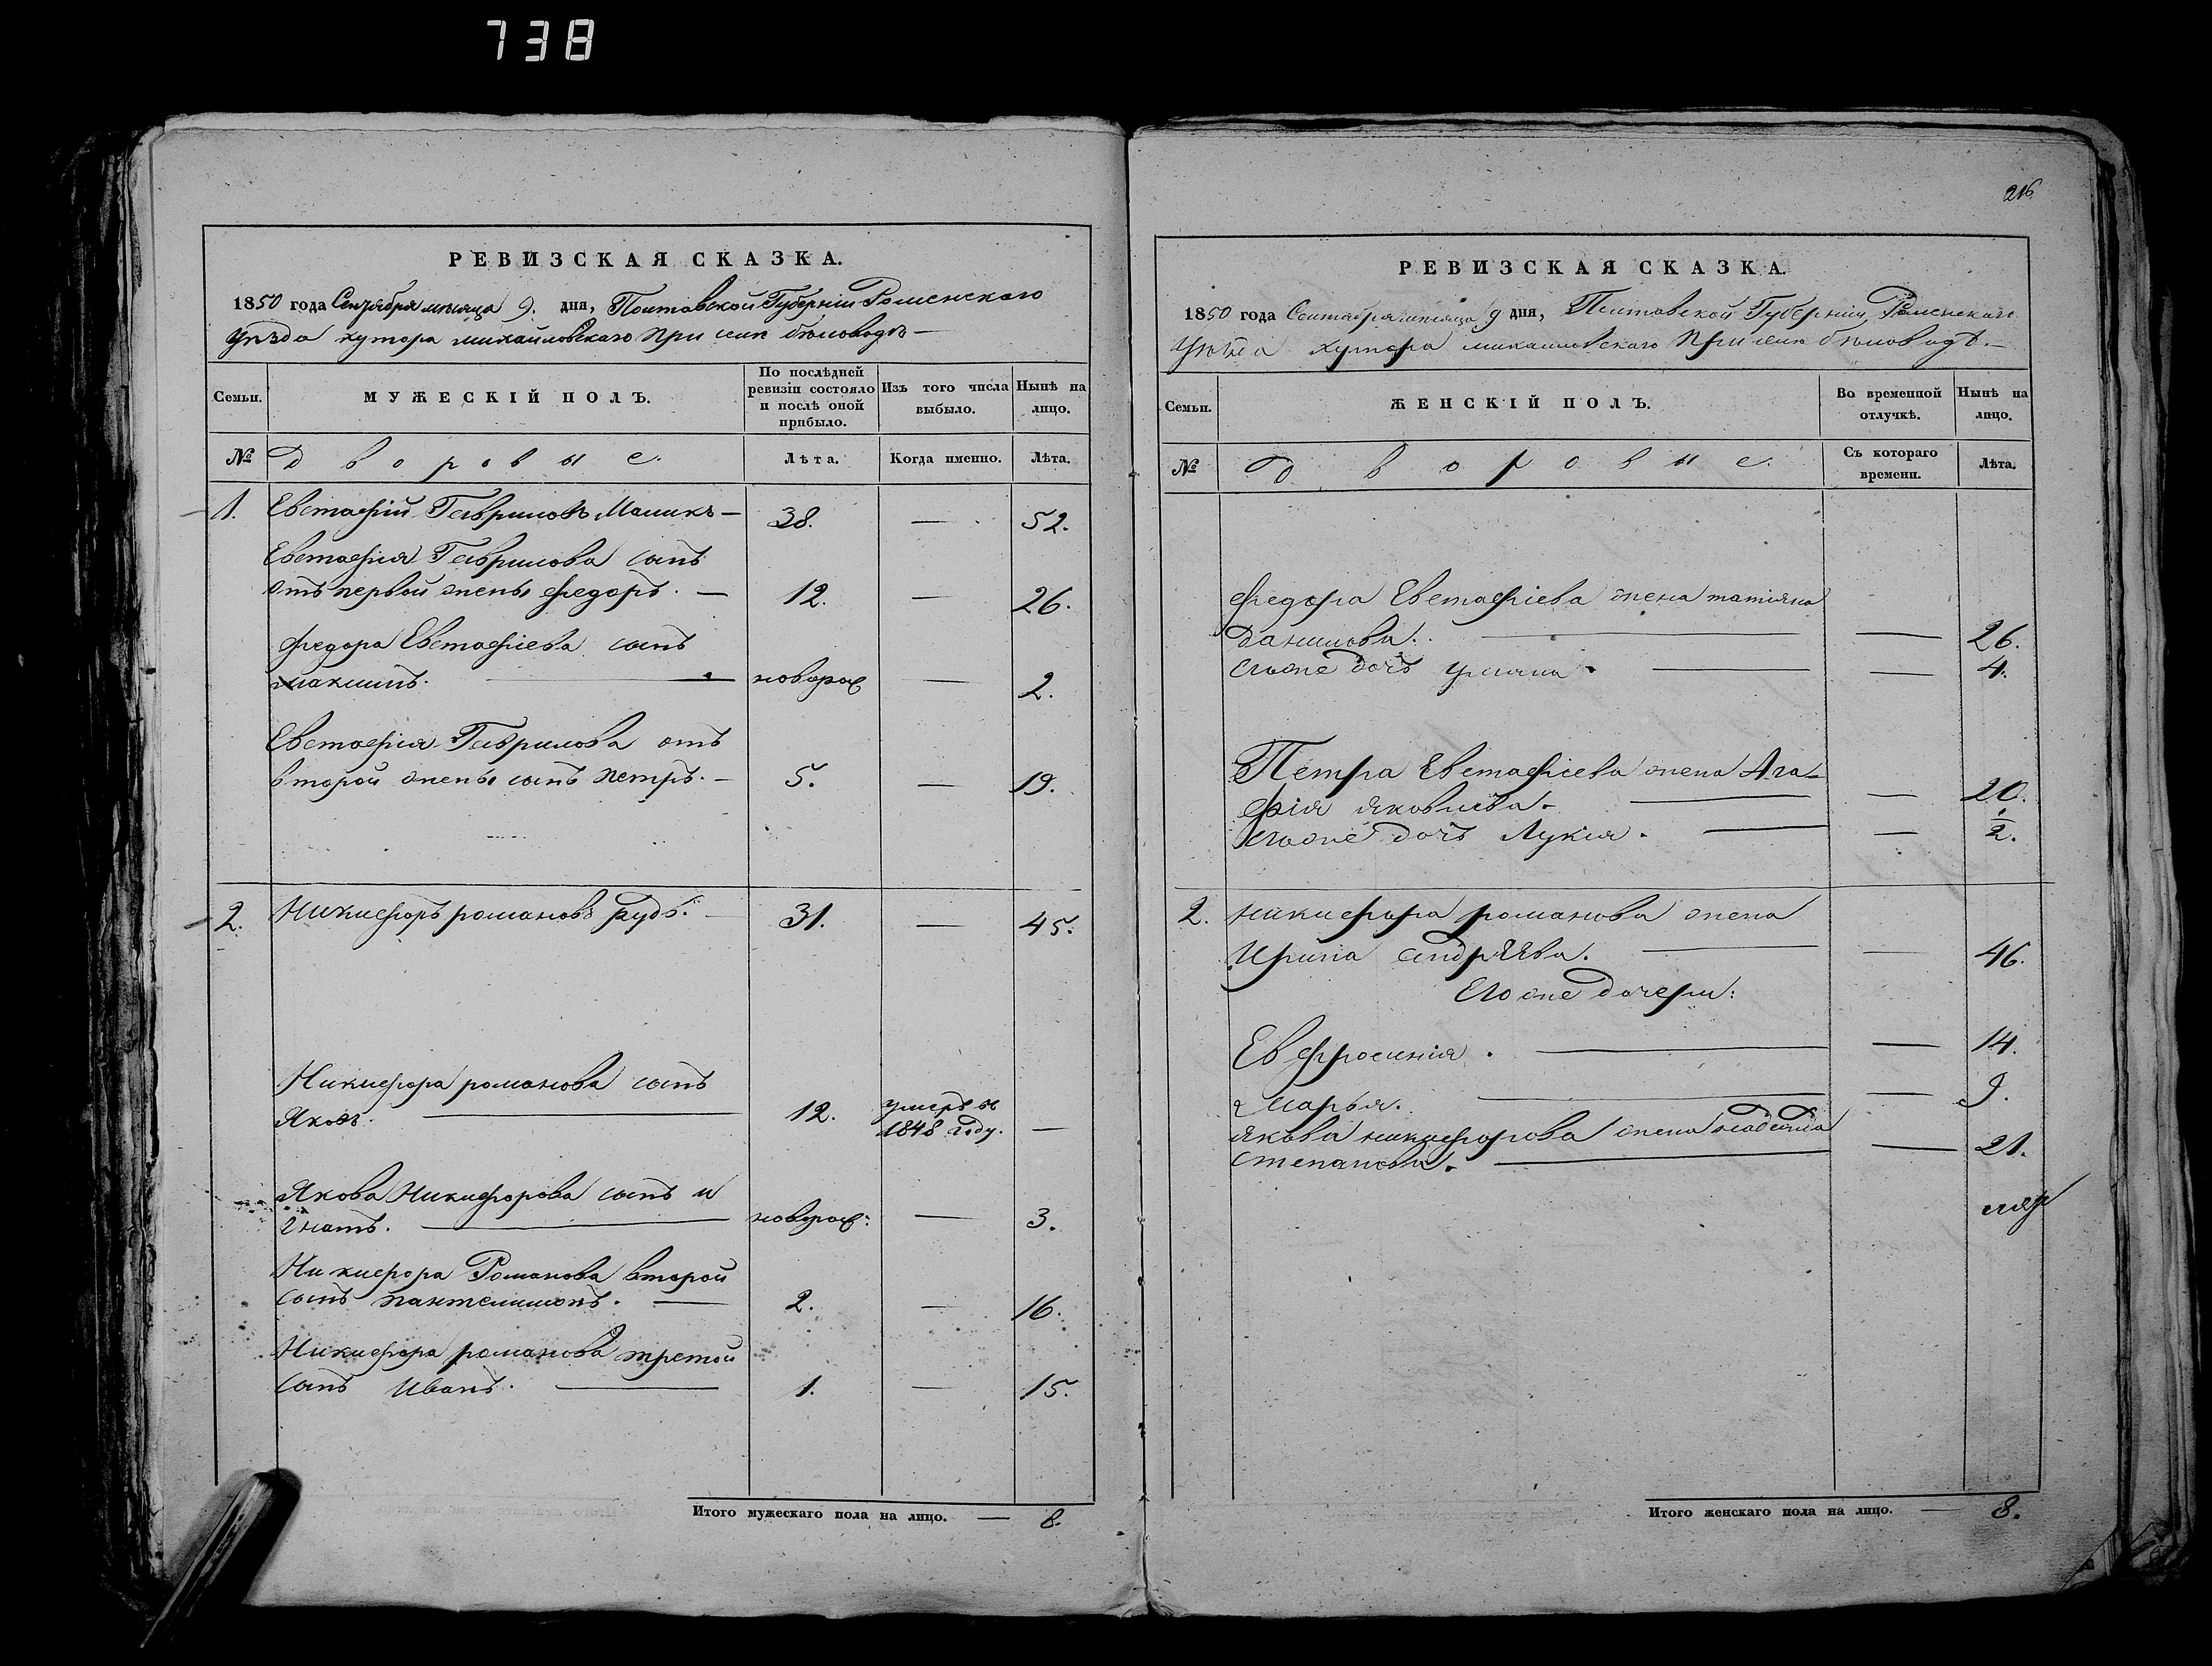 738
РЕВИЗСКАЯ СКАЗКА.
1850 года Сентября месяца 9. дня, Полтавской Губернии Роменского
уезда хутора михайловскаго При селе беловодъ —
Семьи.
МУЖЕСКІЙ ПОЛЪ.
По послѣдней ревизіи состояло и послѣ оной прибыло.
Изъ того числа выбыло.
Нынѣ на лицо.
№
дворовые.
Лѣта.
Когда именно.
Лѣта.
1. Евстафій Гавриловъ Маликъ — 38. — 52.
Евстафія Гаврилова сынъ
отъ первой жены федоръ. — 12. — 26.
федора Евстафіева сынъ
максимъ. — новорож — 2.
Евстафія Гаврилова отъ
второй жены сынъ петръ. — 5. — 19.
2. Никифоръ романовъ рудь. 31. — 45.
Никифора романова сынъ
Яковъ. — 12. умеръ въ
1848 году. —
Якова Никифорова сынъ и
гнатъ. — новорож: — 3.
Никифора Романова второй
сынъ пантелимонъ. — 2. — 16.
Никифора романова третой
сынъ Иванъ. — 1. — 15.
Итого мужескаго пола на лицо. — 8.
216
РЕВИЗСКАЯ СКАЗКА.
1850 года Сентября месяца 9 дня, Полтавской Губерніи Роменскаго
уезда хутора михаиловскаго При селе беловодъ. —
Семьи.
ЖЕНСКІЙ ПОЛЪ.
Во временной отлучкѣ.
Нынѣ на лицо.
№
дворовые.
Съ котораго времени.
Лѣта.
федора Евстафіева жена татіяна
данилова. — — 26.
егоже дочь уліяна. — — 4.
Петра Евстафіева жена Ага-
фія яковлева. — — 20.
Егоже дочь Лукія. — — 1/2.
2. никифора романова жена
Ирина андрѣева. — — 46.
Его же дочери:
Евфросинія. — — 14.
Марья. — — 9.
якова никифорова жена
степанова. — — 21.
Итого женскаго пола на лицо. — 8.